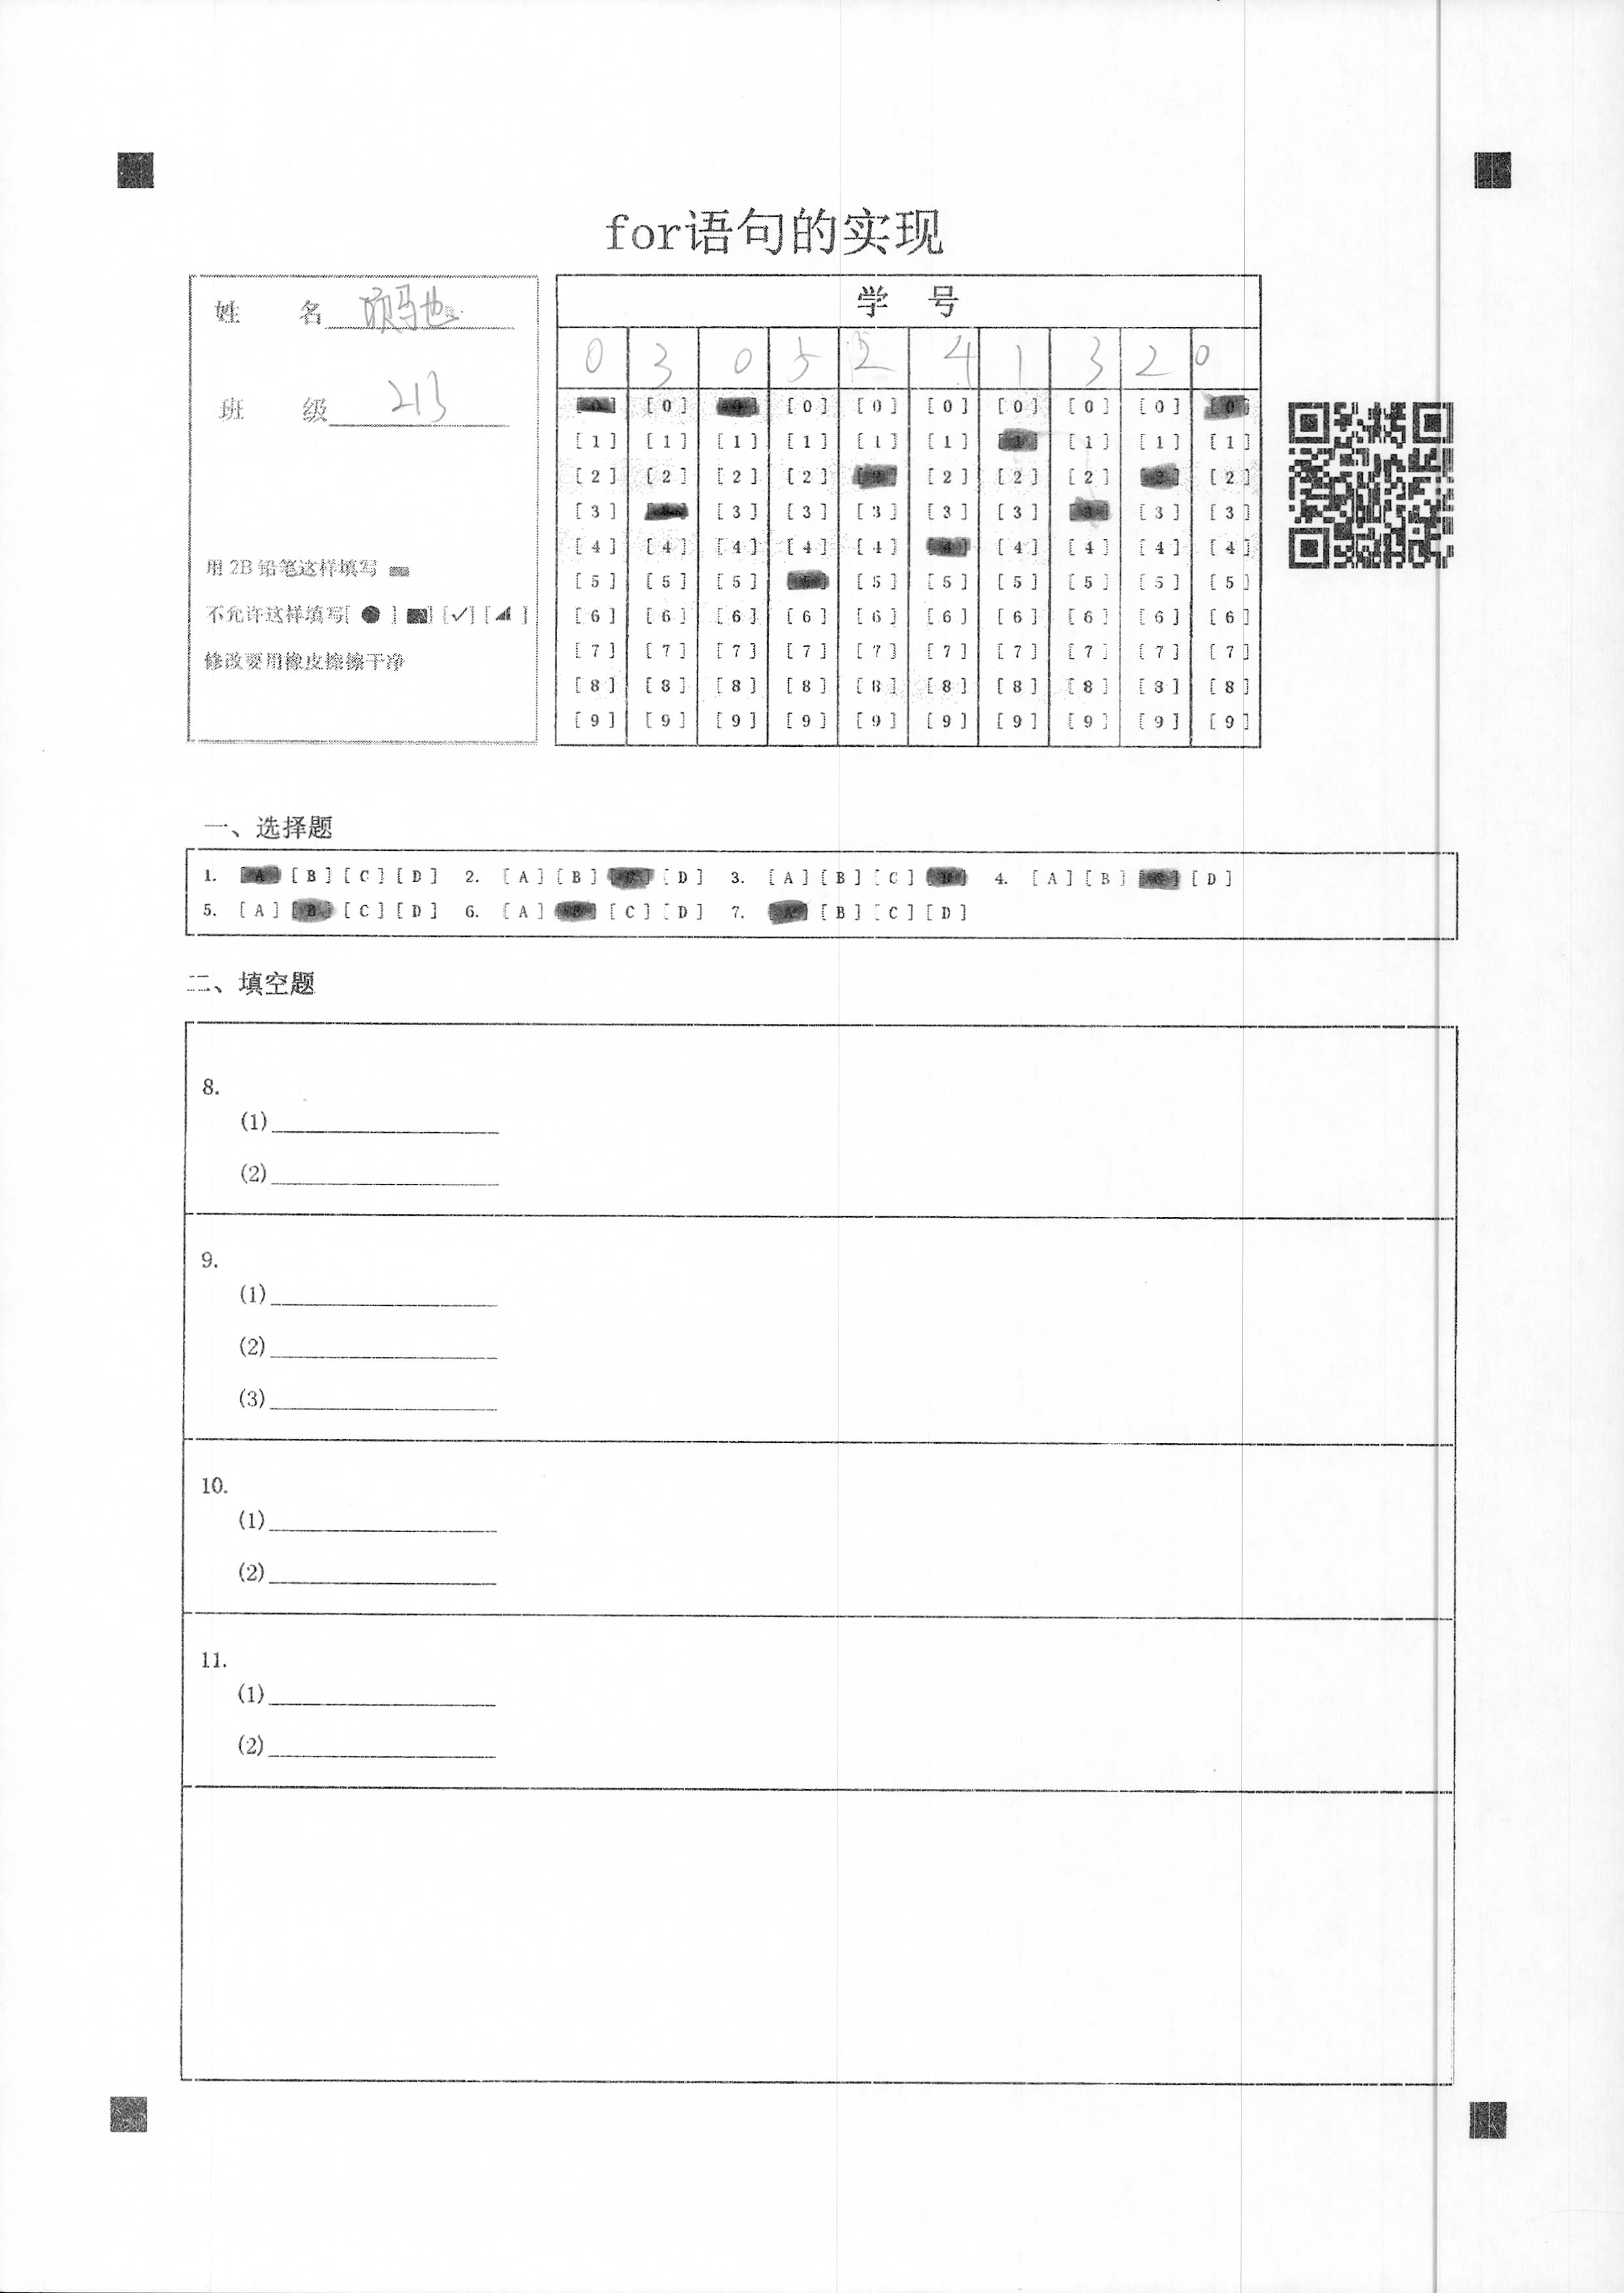 for语句的实现
姓 名 项骋也
班 级 213
用 2B 铅笔这样填写
不允许这样填写[ ● ] [■] [✓] [◢ ]
修改要用橡皮擦擦干净
学 号
0 3 0 5 2 4 1 3 2 0
[0] [0] [0] [0] [0] [0] [0] [0] [0] [0]
[1] [1] [1] [1] [1] [1] [1] [1] [1] [1]
[2] [2] [2] [2] [2] [2] [2] [2] [2] [2]
[3] [3] [3] [3] [3] [3] [3] [3] [3] [3]
[4] [4] [4] [4] [4] [4] [4] [4] [4] [4]
[5] [5] [5] [5] [5] [5] [5] [5] [5] [5]
[6] [6] [6] [6] [6] [6] [6] [6] [6] [6]
[7] [7] [7] [7] [7] [7] [7] [7] [7] [7]
[8] [8] [8] [8] [8] [8] [8] [8] [8] [8]
[9] [9] [9] [9] [9] [9] [9] [9] [9] [9]
一、选择题
1. [A] [B] [C] [D] 2. [A] [B] [C] [D] 3. [A] [B] [C] [D] 4. [A] [B] [C] [D]
5. [A] [B] [C] [D] 6. [A] [B] [C] [D] 7. [A] [B] [C] [D]
二、填空题
8.
(1)
(2)
9.
(1)
(2)
(3)
10.
(1)
(2)
11.
(1)
(2)